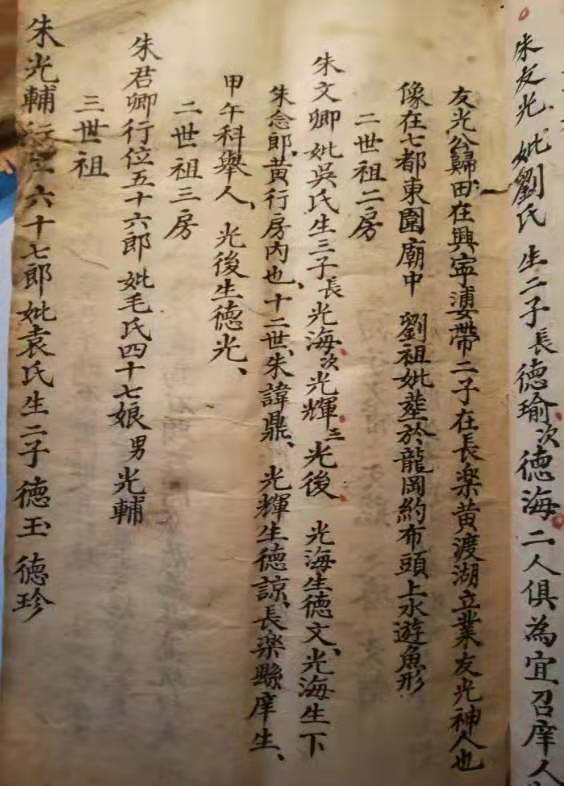 朱友光妣劉氏 生二子長德瑜次德海 二人俱為宜召庠人
友光公歸田在興寧婆帶二子在長樂黃渡湖立業友光神人也
像在七都東圍廟中 劉祖妣塟於龍岡約布頭上水遊魚形
二世祖二房
朱文卿妣吳氏生三子長光海次光輝三光後 光海生德文光海生下
朱念郎黃行房內也十二世朱諱鼎 光輝生德諒長樂縣庠生
甲午科舉人 光後生德光
二世祖三房
朱君卿行位五十六郎 妣毛氏四十七娘 男光輔
三世祖
朱光輔行 六十七郎妣袁氏生二子德玉 德珍